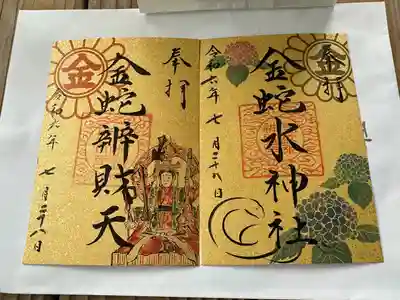 奉拝
金蛇水神社
令和六年 七月二十八日
奉拝
金蛇辨財天
金
令和六年 七月二十八日